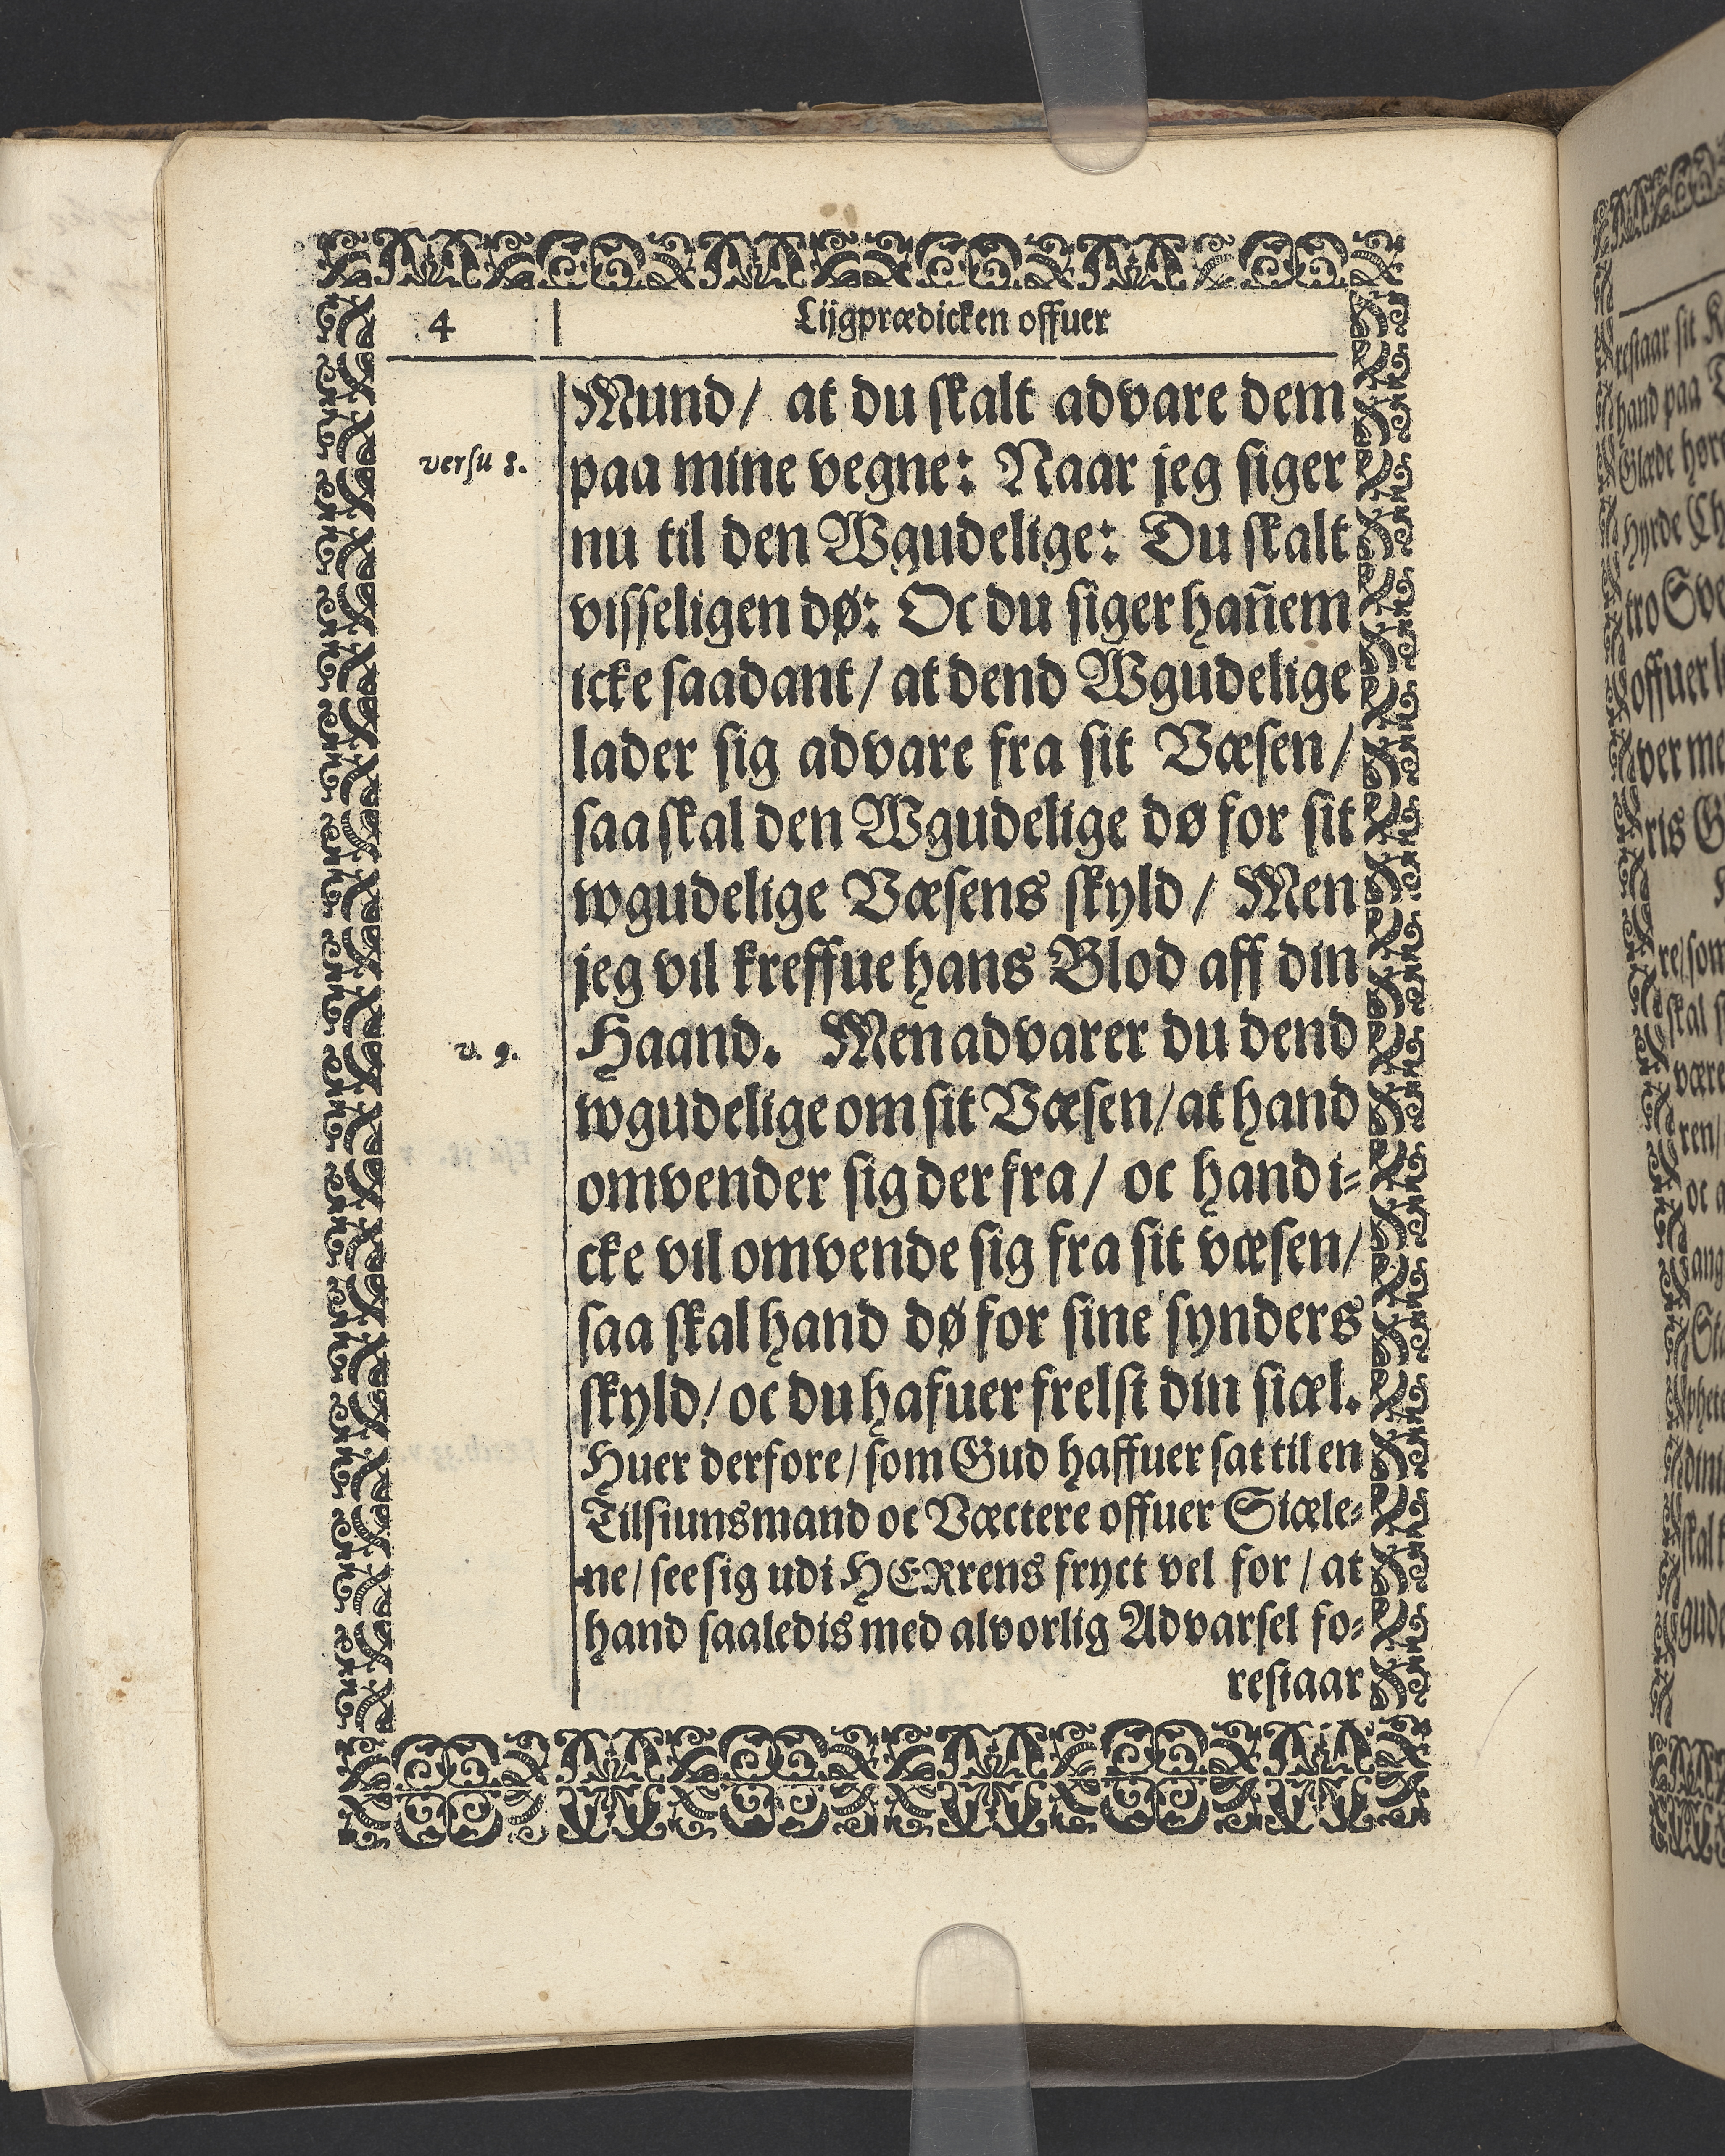 4
Lijgprædicken offuer
Mund/ at du skalt advare dem
versu 8.
paa mine vegne: Naar jeg siger
nu til den Wgudelige: Du skalt
visseligen dø: Oc du siger hañem
icke saadant/ at dend Wgudelige
lader sig advare fra sit Væsen/
saa skal den Wgudelige dø for sit
wgudelige Væsens skyld/ Men
jeg vil kreffue hans Blod aff din
v. 9.
Haand. Men advarer du dend
wgudelige om sit Væsen/ at hand
omvender sig der fra/ oc hand i-
cke vil omvende sig fra sit væsen/
saa skal hand dø for sine synders
skyld/ oc du hafuer frelst din siæl.
Huer derfore/ som Gud haffuer sat til en
Tilsiunsmand oc Væctere offuer Siæle-
ne/ see sig udi HERrens fryct vel for/ at
hand saaledis med alvorlig Advarsel fo-
restaar